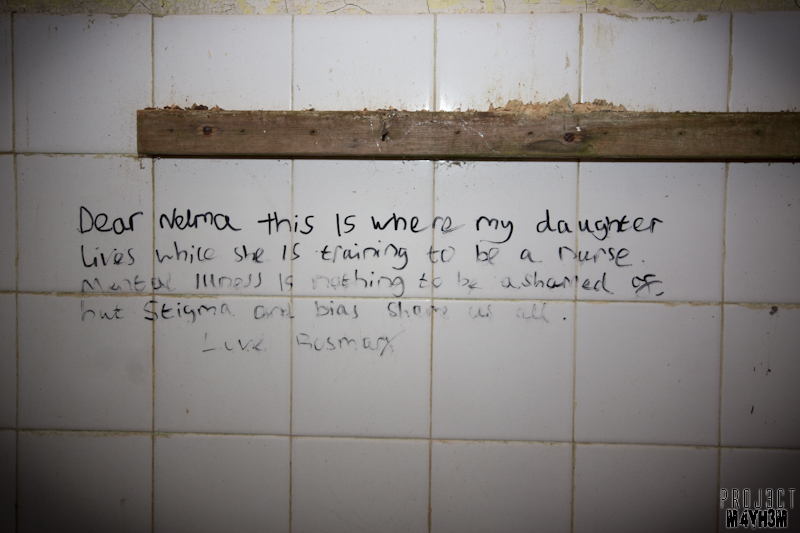 Dear Nelma this Is where my daughter
Lives while she Is training to be a nurse.
Mental Illness Is nothing to be ashamed of.
but Stigma and bias shame us all.
Love Rosmary
PROJ3CT
M4YH3M